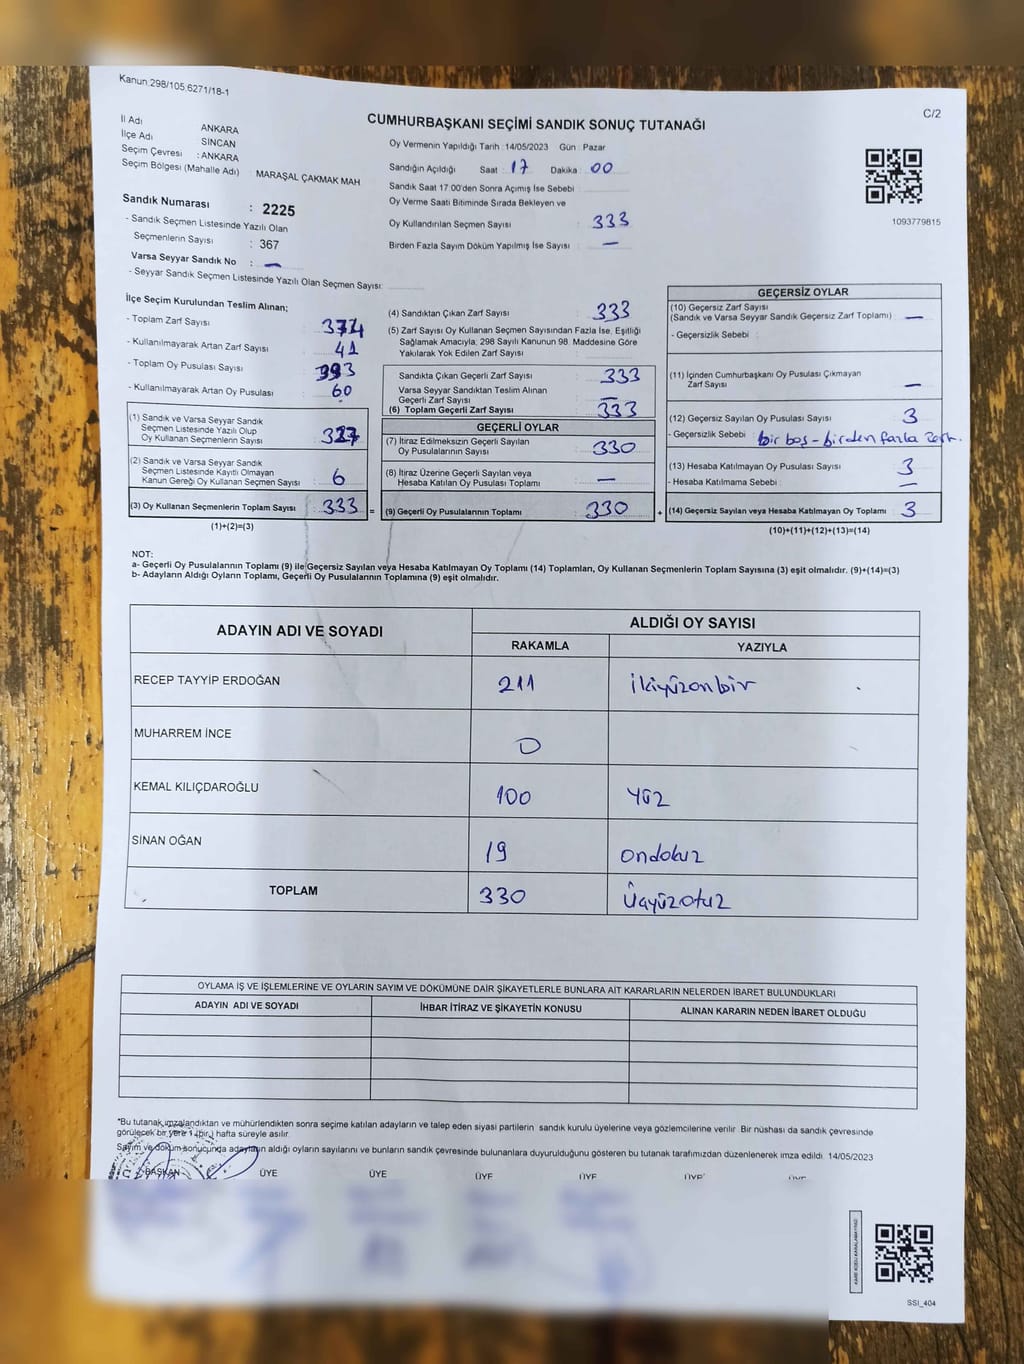 Kanun.298/105.6271/18-1
C/2
CUMHURBAŞKANI SEÇİMİ SANDIK SONUÇ TUTANAĞI
İl Adı ANKARA
İlçe Adı SİNCAN
Seçim Çevresi : ANKARA
Seçim Bölgesi (Mahalle Adı) MARAŞAL ÇAKMAK MAH
Sandık Numarası : 2225
- Sandık Seçmen Listesinde Yazılı Olan
Seçmenlerin Sayısı : 367
Varsa Seyyar Sandık No : —
- Seyyar Sandık Seçmen Listesinde Yazılı Olan Seçmen Sayısı:
Oy Vermenin Yapıldığı Tarih :14/05/2023 Gün : Pazar
Sandığın Açıldığı Saat : 17 Dakika : 00
Sandık Saat 17:00'den Sonra Açımış İse Sebebi :
Oy Verme Saati Bitiminde Sırada Bekleyen ve
Oy Kullandırılan Seçmen Sayısı : 333
Birden Fazla Sayım Döküm Yapılmış İse Sayısı : —
1093779815
İlçe Seçim Kurulundan Teslim Alınan;
- Toplam Zarf Sayısı : 374
- Kullanılmayarak Artan Zarf Sayısı : 41
- Toplam Oy Pusulası Sayısı : 393
- Kullanılmayarak Artan Oy Pusulası : 60
(1) Sandık ve Varsa Seyyar Sandık
Seçmen Listesinde Yazılı Olup
Oy Kullanan Seçmenlerin Sayısı : 327
(2) Sandık ve Varsa Seyyar Sandık
Seçmen Listesinde Kayıtlı Olmayan
Kanun Gereği Oy Kullanan Seçmen Sayısı : 6
(3) Oy Kullanan Seçmenlerin Toplam Sayısı : 333 =
(1)+(2)=(3)
(4) Sandıktan Çıkan Zarf Sayısı : 333
(5) Zarf Sayısı Oy Kullanan Seçmen Sayısından Fazla İse, Eşitliği
Sağlamak Amacıyla; 298 Sayılı Kanunun 98. Maddesine Göre
Yakılarak Yok Edilen Zarf Sayısı :
Sandıkta Çıkan Geçerli Zarf Sayısı : 333
Varsa Seyyar Sandıktan Teslim Alınan
Geçerli Zarf Sayısı : —
(6) Toplam Geçerli Zarf Sayısı : 333
GEÇERLİ OYLAR
(7) İtiraz Edilmeksizin Geçerli Sayılan
Oy Pusulalarının Sayısı : 330
(8) İtiraz Üzerine Geçerli Sayılan veya
Hesaba Katılan Oy Pusulası Toplamı : —
(9) Geçerli Oy Pusulalarının Toplamı : 330 +
GEÇERSİZ OYLAR
(10) Geçersiz Zarf Sayısı
(Sandık ve Varsa Seyyar Sandık Geçersiz Zarf Toplamı) : —
- Geçersizlik Sebebi :
(11) İçinden Cumhurbaşkanı Oy Pusulası Çıkmayan
Zarf Sayısı : —
(12) Geçersiz Sayılan Oy Pusulası Sayısı : 3
- Geçersizlik Sebebi : bir boş - birden fazla
(13) Hesaba Katılmayan Oy Pusulası Sayısı : 3
- Hesaba Katılmama Sebebi : —
(14) Geçersiz Sayılan veya Hesaba Katılmayan Oy Toplamı : 3
(10)+(11)+(12)+(13)=(14)
NOT:
a- Geçerli Oy Pusulalarının Toplamı (9) ile Geçersiz Sayılan veya Hesaba Katılmayan Oy Toplamı (14) Toplamları, Oy Kullanan Seçmenlerin Toplam Sayısına (3) eşit olmalıdır. (9)+(14)=(3)
b- Adayların Aldığı Oyların Toplamı, Geçerli Oy Pusulalarının Toplamına (9) eşit olmalıdır.
ADAYIN ADI VE SOYADI
ALDIĞI OY SAYISI
RAKAMLA YAZIYLA
RECEP TAYYİP ERDOĞAN 211 ikiyüzonbir
MUHARREM İNCE 0
KEMAL KILIÇDAROĞLU 100 Yüz
SİNAN OĞAN 19 ondokuz
TOPLAM 330 Üçyüzotuz
OYLAMA İŞ VE İŞLEMLERİNE VE OYLARIN SAYIM VE DÖKÜMÜNE DAİR ŞİKAYETLERLE BUNLARA AİT KARARLARIN NELERDEN İBARET BULUNDUKLARI
ADAYIN ADI VE SOYADI İHBAR İTİRAZ VE ŞİKAYETİN KONUSU ALINAN KARARIN NEDEN İBARET OLDUĞU
*Bu tutanak imzalandıktan ve mühürlendikten sonra seçime katılan adayların ve talep eden siyasi partilerin sandık kurulu üyelerine veya gözlemcilerine verilir. Bir nüshası da sandık çevresinde
görülecek bir yere 1 (bir) hafta süreyle asılır.
Sayım ve döküm sonucunda adayların aldığı oyların sayılarını ve bunların sandık çevresinde bulunanlara duyurulduğunu gösteren bu tutanak tarafımızdan düzenlenerek imza edildi. 14/05/2023
BAŞKAN ÜYE ÜYE ÜYE ÜYE ÜYE ÜYE
SSI_404